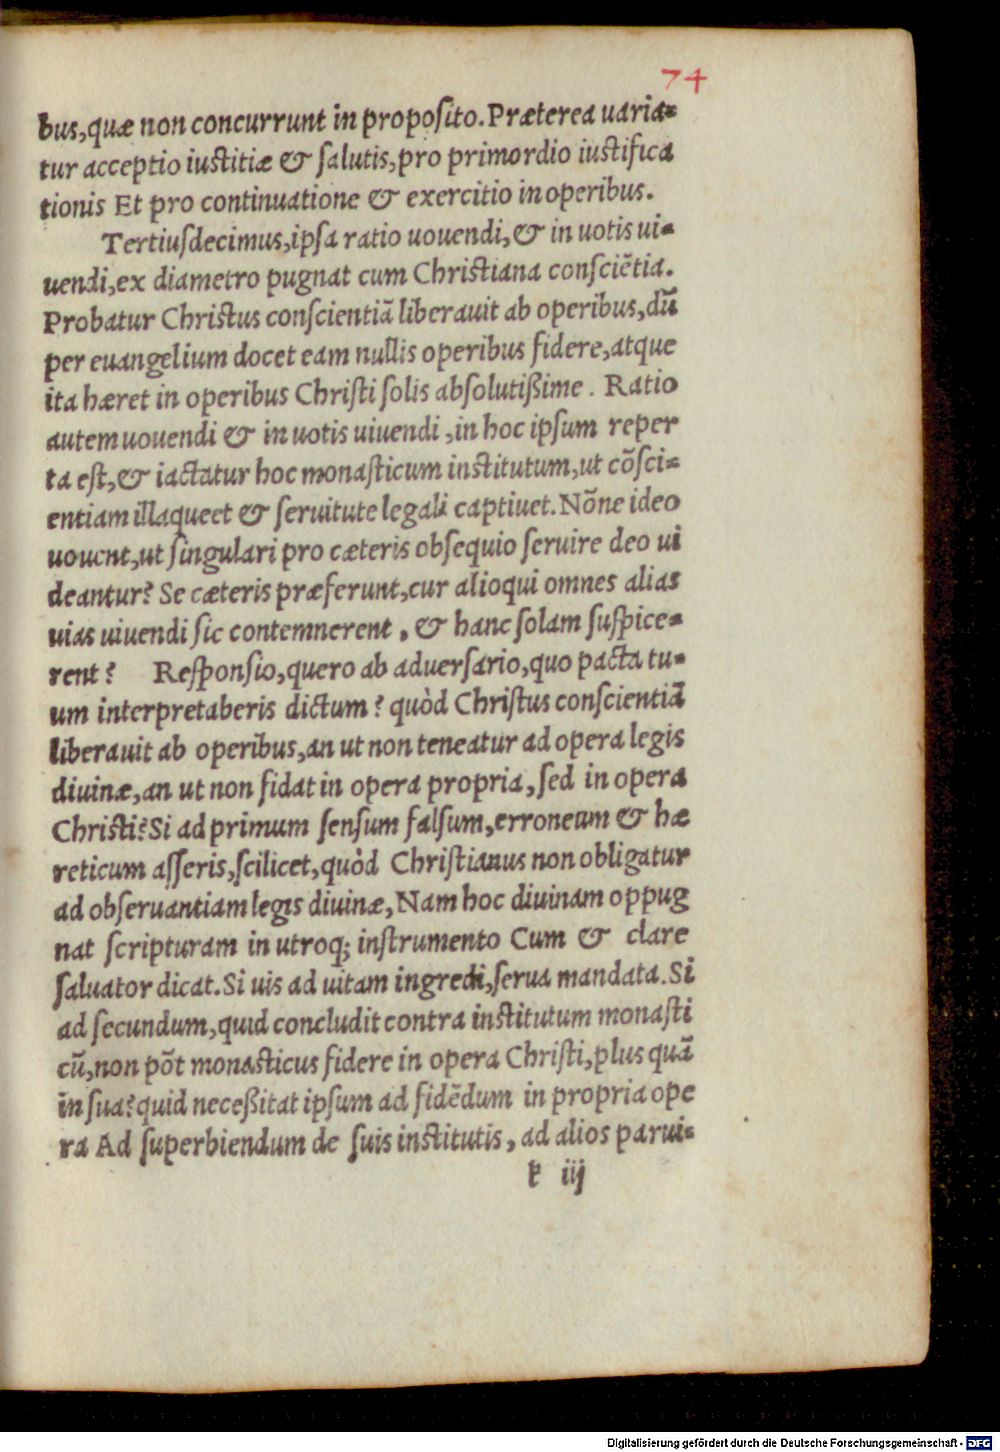 74
bus,quæ non concurrunt in proposito. Præterea uaria-
tur acceptio iustitiæ & salutis,pro primordio iustifica
tionis Et pro continuatione & exercitio in operibus.
Tertiusdecimus,ipsa ratio uouendi,& in uotis ui-
uendi,ex diametro pugnat cum Christiana consciẽtia.
Probatur Christus conscientiã liberauit ab operibus,dũ
per euangelium docet eam nullis operibus fidere,atque
ita hæret in operibus Christi solis absolutißime. Ratio
autem uouendi & in uotis uiuendi,in hoc ipsum reper
ta est,& iactatur hoc monasticum institutum,ut cõsci-
entiam illaqueet & seruitute legali captiuet. Nõne ideo
uouent,ut singulari pro cæteris obsequio seruire deo ui
deantur? Se cæteris præferunt,cur alioqui omnes alias
uias uiuendi sic contemnerent, & hanc solam suspice-
rent? Responsio,quero ab aduersario,quo pacta tu-
um interpretaberis dictum? quòd Christus conscientiã
liberauit ab operibus,an ut non teneatur ad opera legis
diuinæ,an ut non fidat in opera propria,sed in opera
Christi? Si ad primum sensum falsum,erroneum & hæ
reticum asseris,scilicet,quòd Christianus non obligatur
ad obseruantiam legis diuinæ, Nam hoc diuinam oppug
nat scripturam in utroq; instrumento Cum & clare
saluator dicat. Si uis ad uitam ingredi,serua mandata. Si
ad secundum,quid concludit contra institutum monasti
cũ,non põt monasticus fidere in opera Christi,plus quã
in sua? quid neceßitat ipsum ad fidẽdum in propria ope
ra Ad superbiendum de suis institutis, ad alios parui-
k iij
Digitalisierung gefördert durch die Deutsche Forschungsgemeinschaft - DFG